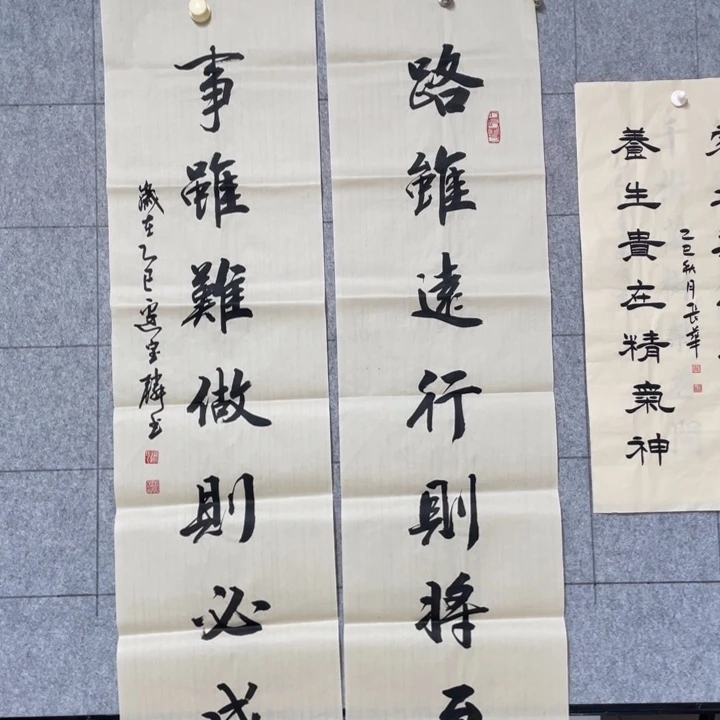 路雖遠行則將至
事雖難做則必成
歲在乙巳
養生貴在精氣神
乙巳秋月長華